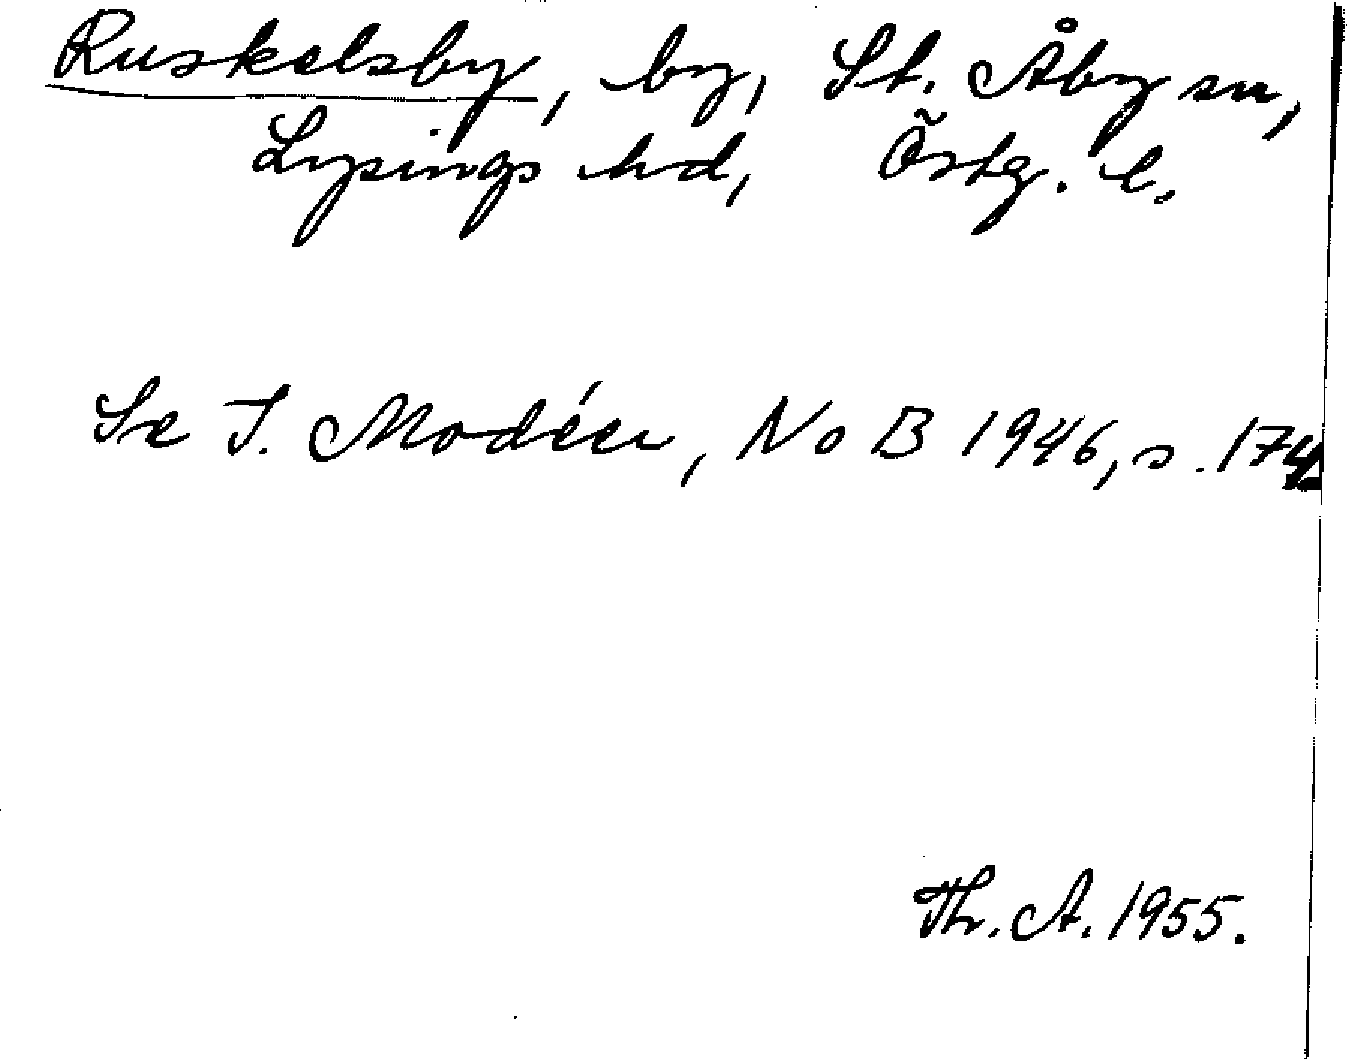 Ruskelsby, by, St. Åby sn,
Lysings hd, Östg. l.
Se I. Modéer, NoB 1946, s. 174.
Th. A. 1955.